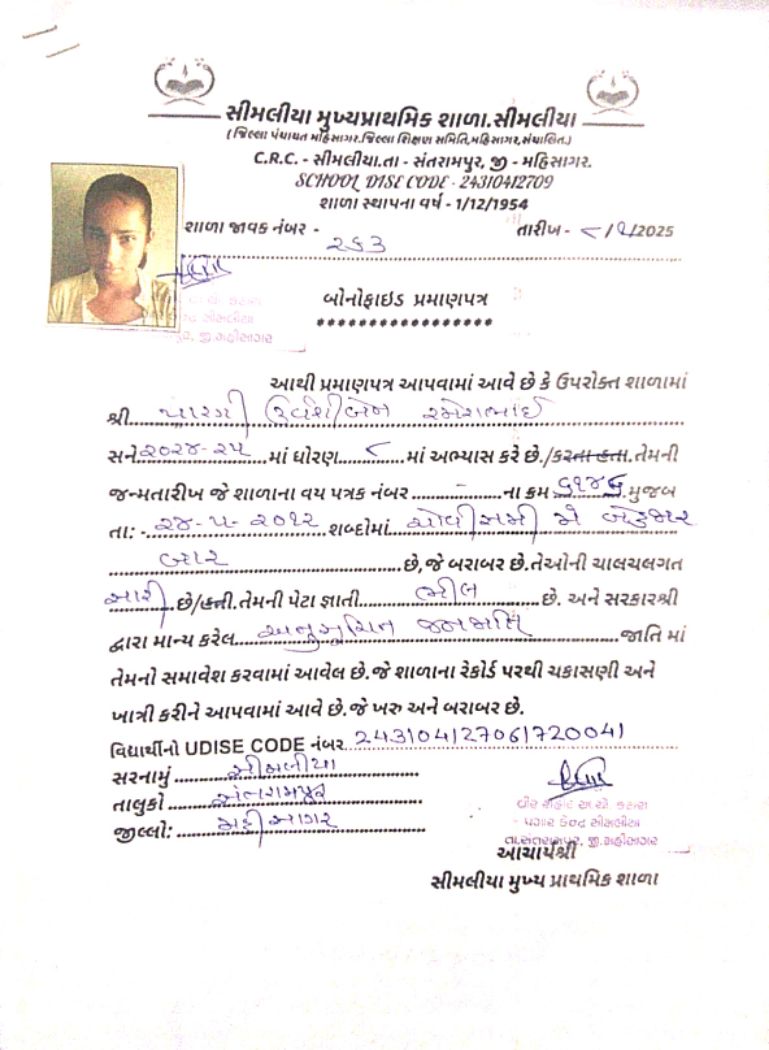 સીમલીયા મુખ્યપ્રાથમિક શાળા.સીમલીયા
( જિલ્લા પંચાયત મહિસાગર.જિલ્લા શિક્ષણ સમિતિ,મહિસાગર,સંચાલિત.)
C.R.C. - સીમલીયા.તા - સંતરામપુર, જી - મહિસાગર.
SCHOOL DISE CODE - 24310412709
શાળા સ્થાપના વર્ષ - 1/12/1954
શાળા જાવક નંબર - ૨૬૩
તારીખ - ૮/૧/2025
બોનોફાઇડ પ્રમાણપત્ર
****************
આથી પ્રમાણપત્ર આપવામાં આવે છે કે ઉપરોક્ત શાળામાં
શ્રી પારગી ઉર્વશીબેન રમેશભાઈ
સને ૨૦૨૪-૨૫ માં ધોરણ ૮ માં અભ્યાસ કરે છે./કરતા હતા.તેમની
જન્મતારીખ જે શાળાના વય પત્રક નંબર - ના ક્રમ ૬૧૪૬ મુજબ
તા: - ૨૪-૫-૨૦૧૨ શબ્દોમાં ચોવીસમી મે બેહજાર
બાર છે,જે બરાબર છે.તેઓની ચાલચલગત
સારી છે/હતી.તેમની પેટા જ્ઞાતી ભીલ છે. અને સરકારશ્રી
દ્વારા માન્ય કરેલ અનુસૂચિત જનજાતિ જાતિ માં
તેમનો સમાવેશ કરવામાં આવેલ છે.જે શાળાના રેકોર્ડ પરથી ચકાસણી અને
ખાત્રી કરીને આપવામાં આવે છે.જે ખરુ અને બરાબર છે.
વિદ્યાર્થીનો UDISE CODE નંબર 243104127061720041
સરનામું સીમલીયા
તાલુકો સંતરામપુર
જીલ્લો: મહીસાગર
પગાર કેન્દ્ર સીમલીયા
તા.સંતરામપુર, જી.મહીસાગર
આચાર્યશ્રી
સીમલીયા મુખ્ય પ્રાથમિક શાળા